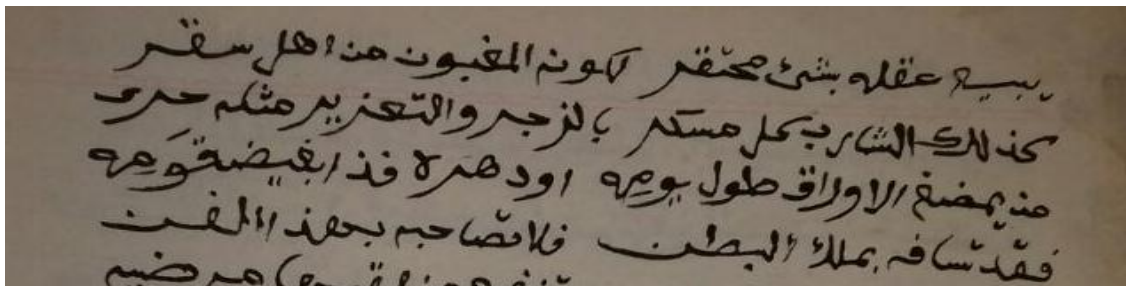 يبيع عقله بشئ محتقر كونه المغبون من اهل سقر
كذلك الشارب كل مسكر بالزجر والتعزير مثله حرى
من يمضغ الاوراق طول يومه او دهره فذا بغيضة قومه
فقد تسافه بملك البطن فلا تصاحبه بهذا الفن